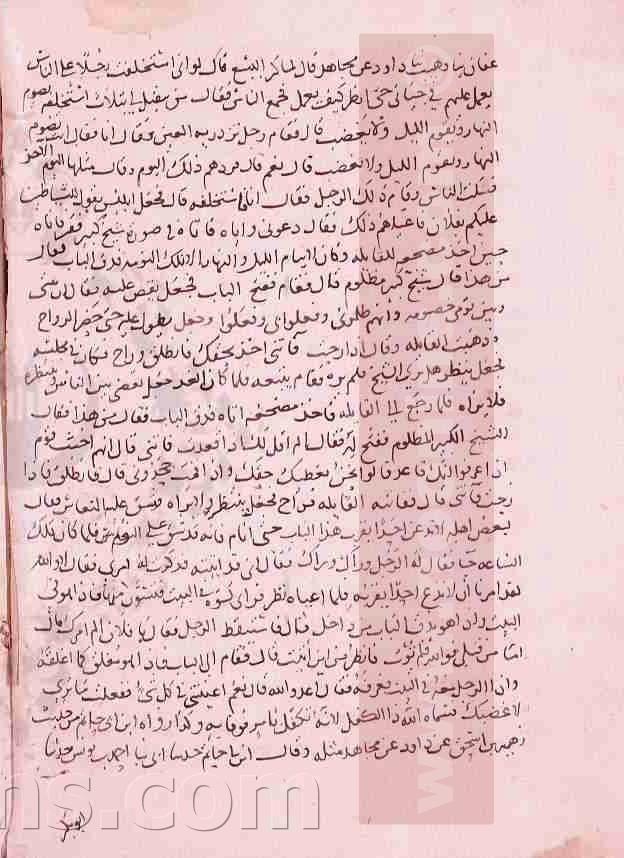 عفان ثنا وهيب ثنا داود عن مجاهد قال لما كبر اليسع قال لو اني استخلفت رجلا على الناس
يعمل عليهم في حياتي حتى انظر كيف يعمل فجمع الناس فقال من يتقبل لي بثلاث استخلفه يصوم
النهار ويقوم الليل ولا يغضب قال فقام رجل تزدريه العين فقال انا فقال انت تصوم
النهار وتقوم الليل ولا تغضب قال نعم قال فردهم ذلك اليوم وقال مثلها اليوم الآخر
فسكت الناس وقام ذلك الرجل فقال انا فاستخلفه قال فجعل ابليس يقول للشياطين
عليكم بفلان فاعياهم ذلك فقال دعوني واياه فاتاه في صورة شيخ كبير فقير فاتاه
حين اخذ مضجعه للقايلة وكان لا ينام الليل والنهار الا تلك النومة فدق الباب فقال
من هذا قال شيخ كبير مظلوم قال فقام ففتح الباب فجعل يقص عليه فقال ان بيني
وبين قومي خصومة وانهم ظلموني وفعلوا بي وفعلوا وجعل يطول عليه حتى حضر الرواح
وذهبت القايلة وقال اذا رحت فاتني اخذ بحقك فانطلق وراح فكان في مجلسه
فجعل ينظر هل يرى الشيخ فلم يره فقام يتبعه فلما كان الغد جعل يقضي بين الناس ينتظره
فلا يراه فلما رجع الى القايلة فاخذ مضجعه اتاه فدق الباب فقال من هذا فقال
الشيخ الكبير المظلوم ففتح له فقال الم اقل لك اذا قعدت فاتني قال انهم اخبث قوم
اذا عرفوا انك قاعد قالوا نحن نعطيك حقك واذا قمت جحدوني قال فانطلق فاذا
رحت فاتني قال ففاتته القايلة فراح فجعل ينتظر ولا يراه وشق عليه النعاس فقال
لبعض اهله لا تدعن احدا يقرب هذا الباب حتى انام فانه قد شق علي النوم فلما كان تلك
الساعة جا فقال له الرجل وراك وراك فقال اني قد اتيته فذكرت له امري فقال لا والله
لقد امرنا ان لا ندع احدا يقربه فلما اعياه نظر فراى كوة في البيت فتسور منها فاذا هو في
البيت واذا هو يدق الباب من داخل قال فاستيقظ الرجل فقال يا فلان الم امرك قال
اما من قبلي فوالله لم تؤت فانظر من اين اتيت قال فقام الى الباب فاذا هو مغلق كما اغلقه
واذا الرجل معه في البيت فعرفه فقال اعدو الله قال نعم اعييتني في كل شي ففعلت ما ترى
لاغضبك فسماه الله ذا الكفل لانه تكفل بامر فوفى به وكذا رواه ابن ابي حاتم من حديث
زهير بن اسحق عن داود عن مجاهد مثله وقال ابن ابي حاتم حدثنا ابي ثنا احمد بن يونس حدثنا
ابو بكر